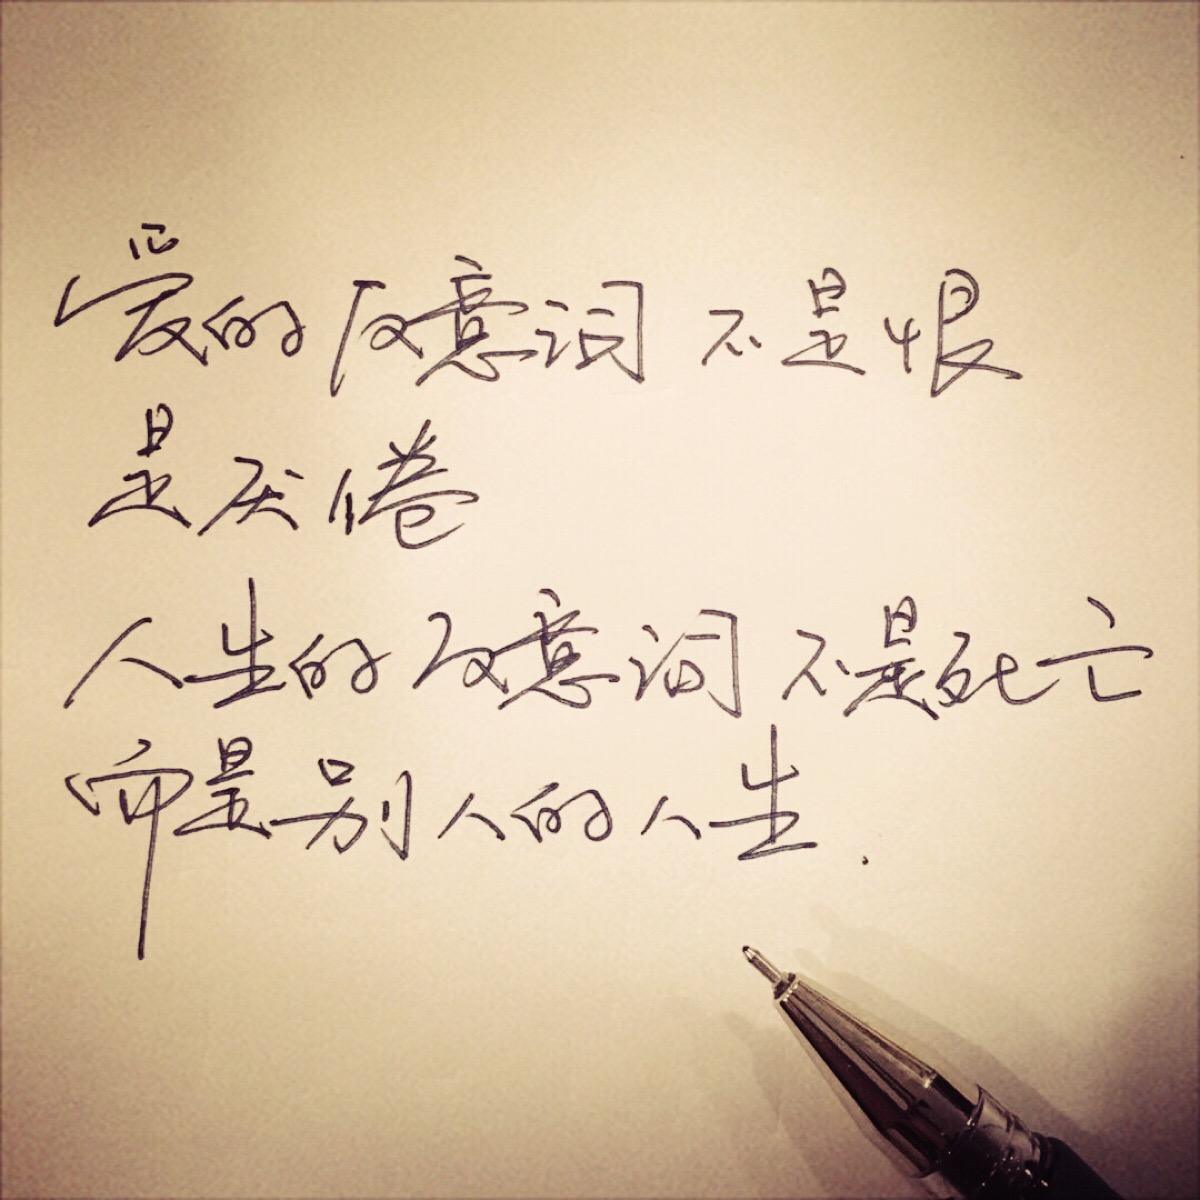 爱的反意词不是恨
是厌倦
人生的反意词不是死亡
而是别人的人生.